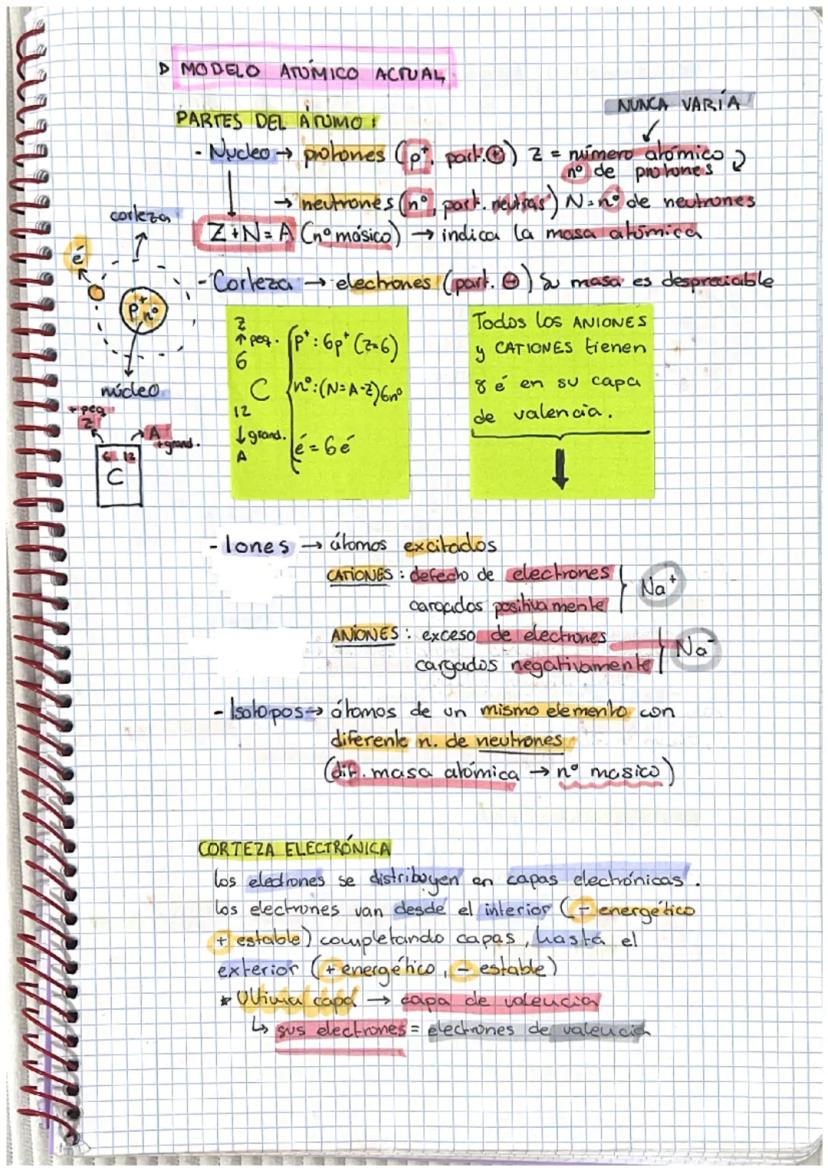 ▷ MODELO ATÓMICO ACTUAL
NUNCA VARÍA
PARTES DEL ÁTOMO:
- Nucleo → protones (p⁺, part.⊕) Z = número atómico
nº de protones
→ neutrones (nº, part. neutras) N = nº de neutrones
Z+N=A (nº másico) → indica la masa atómica
- Corteza → electrones (part. ⊖) Su masa es despreciable
corteza
é
p⁺ nº
núcleo
+ peq.
Z
A
+grand.
6 12
C
Z
↑ peq.
6
C
12
↓ grand.
A
p⁺: 6p⁺ (Z=6)
nº: (N=A-Z) 6nº
é = 6é
Todos los ANIONES
y CATIONES tienen
8 é en su capa
de valencia.
- Iones → átomos excitados
CATIONES: defecto de electrones
cargados positivamente
Na⁺
ANIONES: exceso de electrones
cargados negativamente
Na⁻
- Isotopos → átomos de un mismo elemento con
diferente n. de neutrones
(dif. masa atómica → nº masico)
CORTEZA ELECTRÓNICA
Los electrones se distribuyen en capas electrónicas.
Los electrones van desde el interior (- energético
+ estable) completando capas, hasta el
exterior (+ energético, - estable)
* Ultima capa → capa de valencia
↳ sus electrones = electrones de valencia